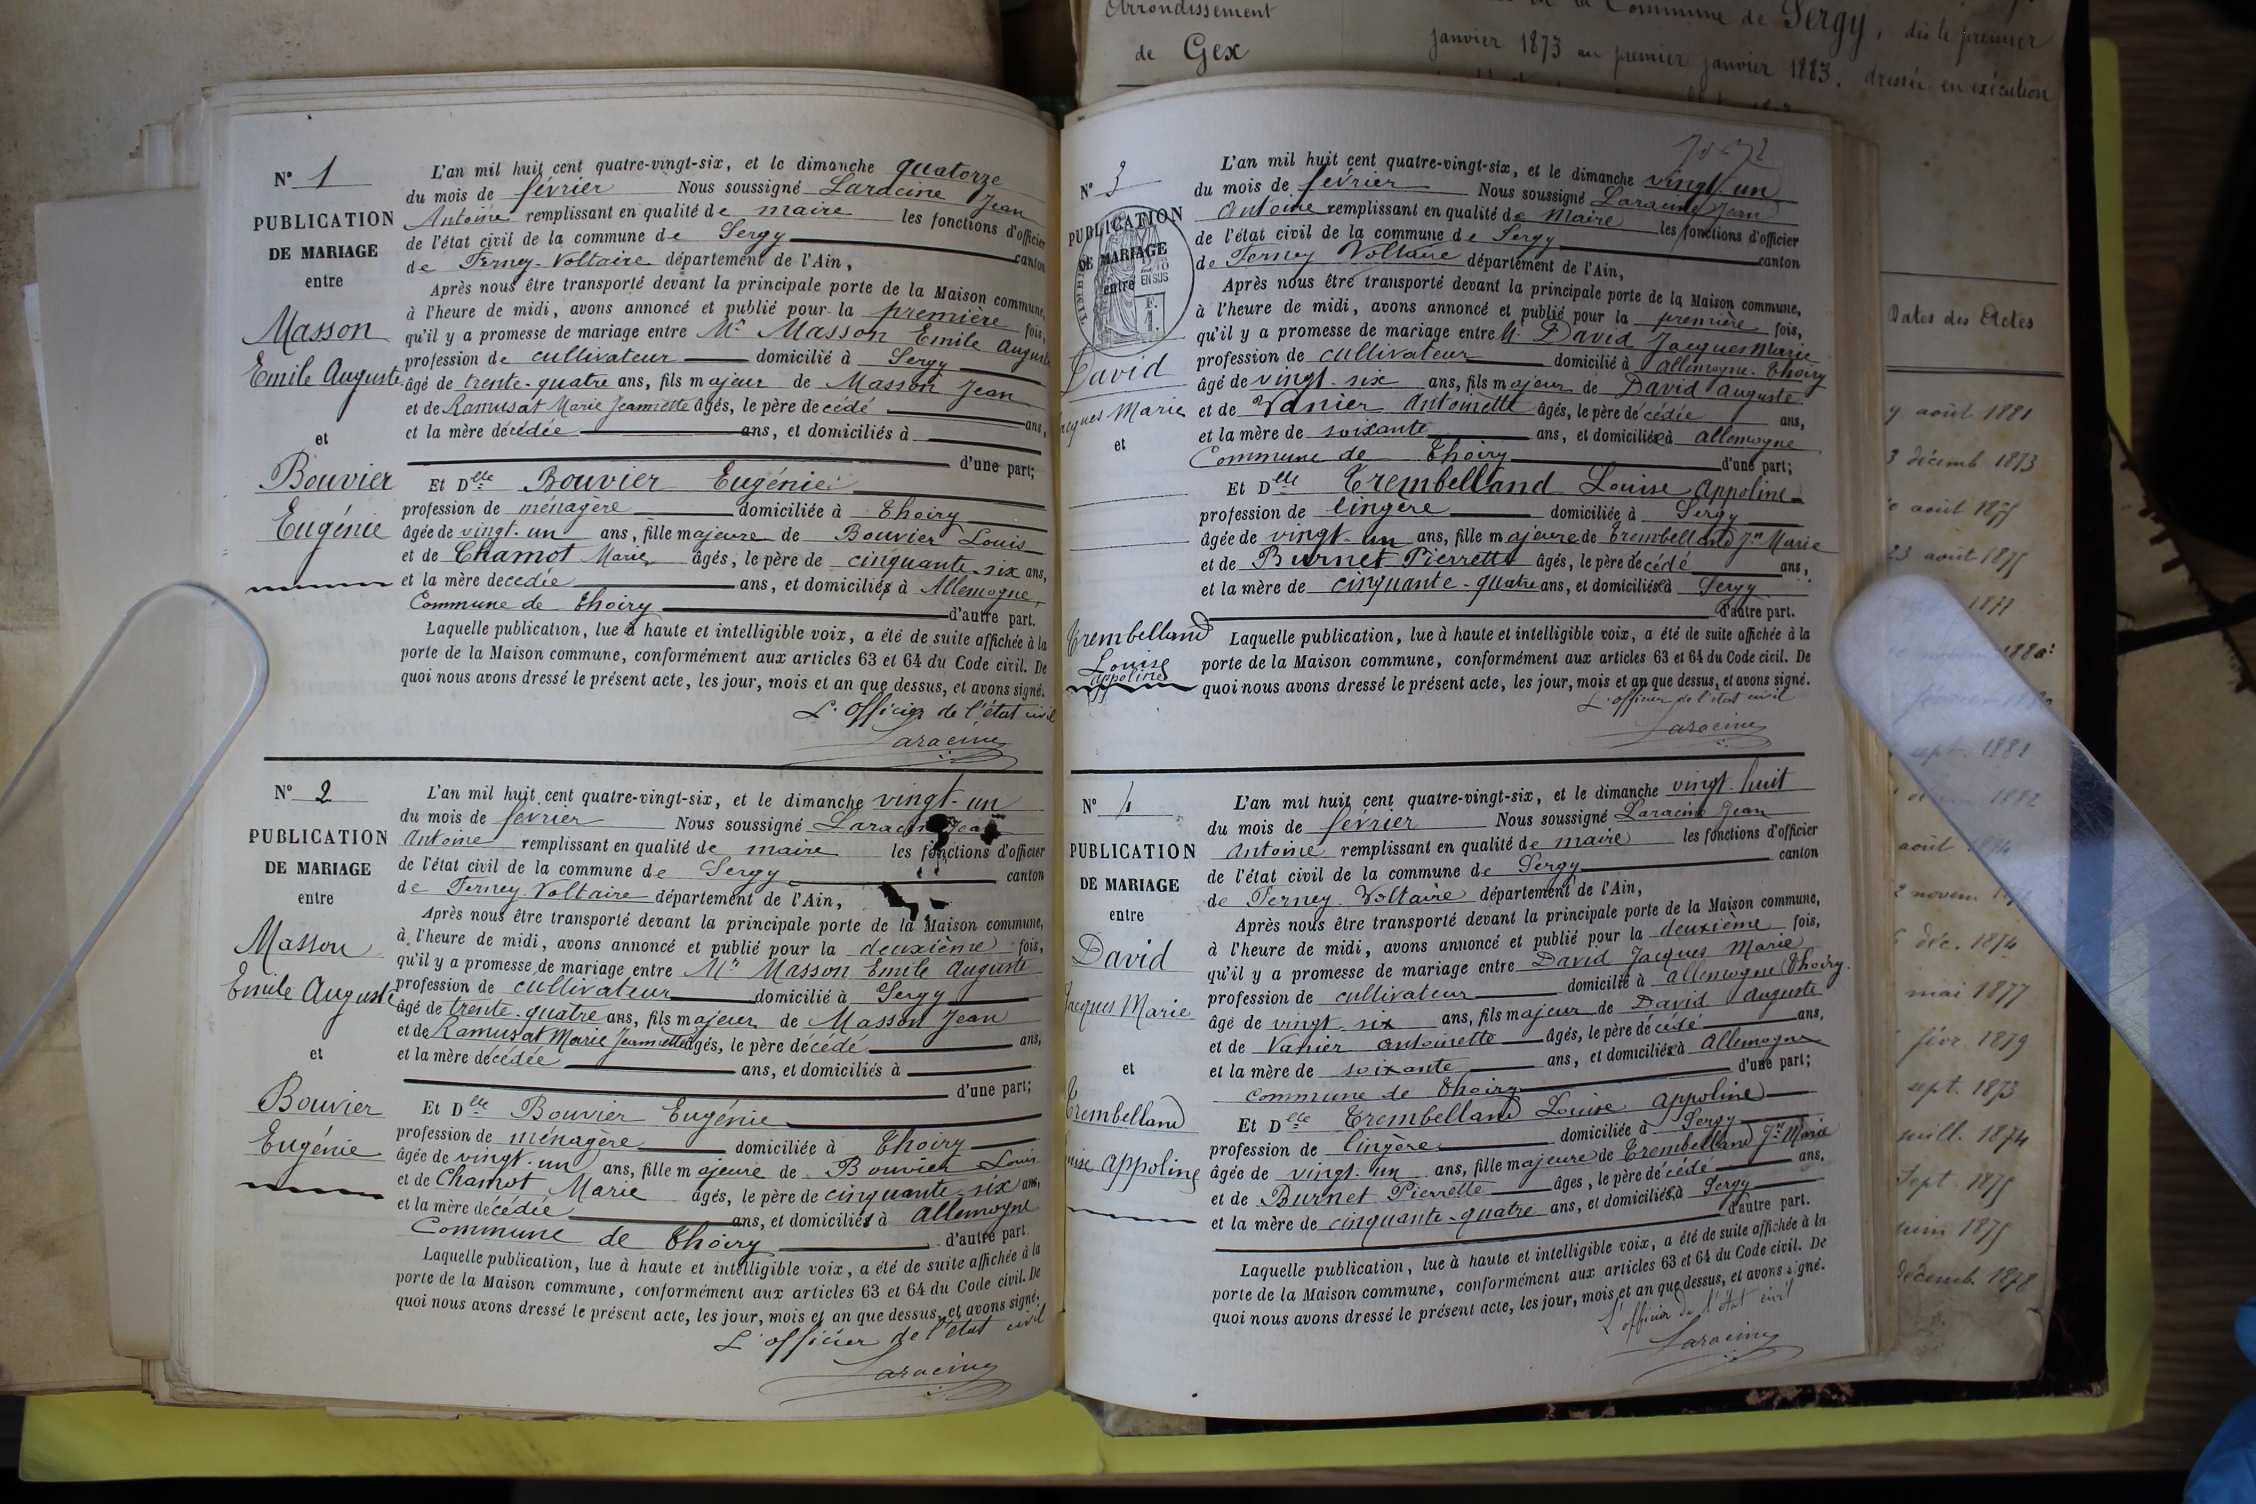 Arrondissement
de Gex
de la Commune de Sergy, dès le premier
janvier 1873 au premier janvier 1883. dressée en exécution
N° 1
PUBLICATION
DE MARIAGE
entre
Masson
Emile Auguste
et
Bouvier
Eugénie
L'an mil huit cent quatre-vingt-six, et le dimanche quatorze
du mois de février Nous soussigné Laracine Jean
Antoine remplissant en qualité de maire les fonctions d'officier
de l'état civil de la commune de Sergy canton
de Ferney-Voltaire département de l'Ain,
Après nous être transporté devant la principale porte de la Maison commune,
à l'heure de midi, avons annoncé et publié pour la première fois,
qu'il y a promesse de mariage entre Mr Masson Emile Auguste
profession de cultivateur domicilié à Sergy
âgé de trente-quatre ans, fils majeur de Masson Jean
et de Ramusat Marie Jeannette âgés, le père décédé ans,
et la mère décédée ans, et domiciliés à
d'une part;
Et Delle Bouvier Eugénie
profession de ménagère domiciliée à Thoiry
âgée de vingt-un ans, fille majeure de Bouvier Louis
et de Chamot Marie âgés, le père de cinquante-six ans,
et la mère decedée ans, et domiciliés à Allemogne,
Commune de Thoiry d'autre part.
Laquelle publication, lue à haute et intelligible voix, a été de suite affichée à la
porte de la Maison commune, conformément aux articles 63 et 64 du Code civil. De
quoi nous avons dressé le présent acte, les jour, mois et an que dessus, et avons signé.
L'officier de l'état civil
Laracine
N° 2
PUBLICATION
DE MARIAGE
entre
Masson
Emile Auguste
et
Bouvier
Eugénie
L'an mil huit cent quatre-vingt-six, et le dimanche vingt-un
du mois de février Nous soussigné Laracine Jean
Antoine remplissant en qualité de maire les fonctions d'officier
de l'état civil de la commune de Sergy canton
de Ferney-Voltaire département de l'Ain,
Après nous être transporté devant la principale porte de la Maison commune,
à l'heure de midi, avons annoncé et publié pour la deuxième fois,
qu'il y a promesse de mariage entre Mr Masson Emile Auguste
profession de cultivateur domicilié à Sergy
âgé de trente-quatre ans, fils majeur de Masson Jean
et de Ramusat Marie Jeannette âgés, le père décédé ans,
et la mère décédée ans, et domiciliés à
d'une part;
Et Delle Bouvier Eugénie
profession de ménagère domiciliée à Thoiry
âgée de vingt-un ans, fille majeure de Bouvier Louis
et de Chamot Marie âgés, le père de cinquante-six ans,
et la mère décédée ans, et domiciliés à Allemogne
Commune de Thoiry d'autre part.
Laquelle publication, lue à haute et intelligible voix, a été de suite affichée à la
porte de la Maison commune, conformément aux articles 63 et 64 du Code civil. De
quoi nous avons dressé le présent acte, les jour, mois et an que dessus, et avons signé.
L'officier de l'état civil
Laracine
N° 3
PUBLICATION
DE MARIAGE
entre
EN SUS
David
Jacques Marie
et
Trembelland
Louise
Appoline
L'an mil huit cent quatre-vingt-six, et le dimanche vingt un
du mois de février Nous soussigné Laracine Jean
Antoine remplissant en qualité de Maire les fonctions d'officier
de l'état civil de la commune de Sergy canton
de Ferney Voltaire département de l'Ain,
Après nous être transporté devant la principale porte de la Maison commune,
à l'heure de midi, avons annoncé et publié pour la première fois,
qu'il y a promesse de mariage entre Mr David Jacques Marie
profession de cultivateur domicilié à Allemogne-Thoiry
âgé de vingt-six ans, fils majeur de David Auguste
et de Vanier Antoinette âgés, le père décédée ans,
et la mère de soixante ans, et domiciliée à Allemogne
Commune de Thoiry d'une part;
Et Delle Trembelland Louise Appoline
profession de lingère domiciliée à Sergy
âgée de vingt-un ans, fille majeure de Trembelland Jn Marie
et de Burnet Pierrette âgés, le père décédé ans,
et la mère de cinquante-quatre ans, et domiciliée à Sergy
d'autre part.
Laquelle publication, lue à haute et intelligible voix, a été de suite affichée à la
porte de la Maison commune, conformément aux articles 63 et 64 du Code civil. De
quoi nous avons dressé le présent acte, les jour, mois et an que dessus, et avons signé.
L'officier de l'état civil
Laracine
N° 4
PUBLICATION
DE MARIAGE
entre
David
Jacques Marie
et
Trembelland
Appoline
L'an mil huit cent quatre-vingt-six, et le dimanche vingt-huit
du mois de février Nous soussigné Laracine Jean
Antoine remplissant en qualité de maire les fonctions d'officier
de l'état civil de la commune de Sergy canton
de Ferney-Voltaire département de l'Ain,
Après nous être transporté devant la principale porte de la Maison commune,
à l'heure de midi, avons annoncé et publié pour la deuxième fois,
qu'il y a promesse de mariage entre David Jacques Marie
profession de cultivateur domicilié à Allemogne (Thoiry
âgé de vingt-six ans, fils majeur de David Auguste
et de Vanier Antoinette âgés, le père décédé ans,
et la mère de soixante ans, et domiciliée à Allemogne
Commune de Thoiry d'une part;
Et Delle Trembelland Louise Appoline
profession de lingère domiciliée à Sergy
âgée de vingt-un ans, fille majeure de Trembelland Jn Marie
et de Burnet Pierrette âgés, le père décédé ans,
et la mère de cinquante-quatre ans, et domiciliée à Sergy
d'autre part.
Laquelle publication, lue à haute et intelligible voix, a été de suite affichée à la
porte de la Maison commune, conformément aux articles 63 et 64 du Code civil. De
quoi nous avons dressé le présent acte, les jour, mois et an que dessus, et avons signé.
L'officier de l'état civil
Laracine
Dates des Actes
9 août 1881
3 décemb. 1873
août 1875
23 août 1875
1877
sept. 1881
1882
août
2 novem.
déc. 1874
mai 1877
févr. 1879
sept. 1873
juill. 1874
Sept. 1875
juin 1875
décemb. 1878